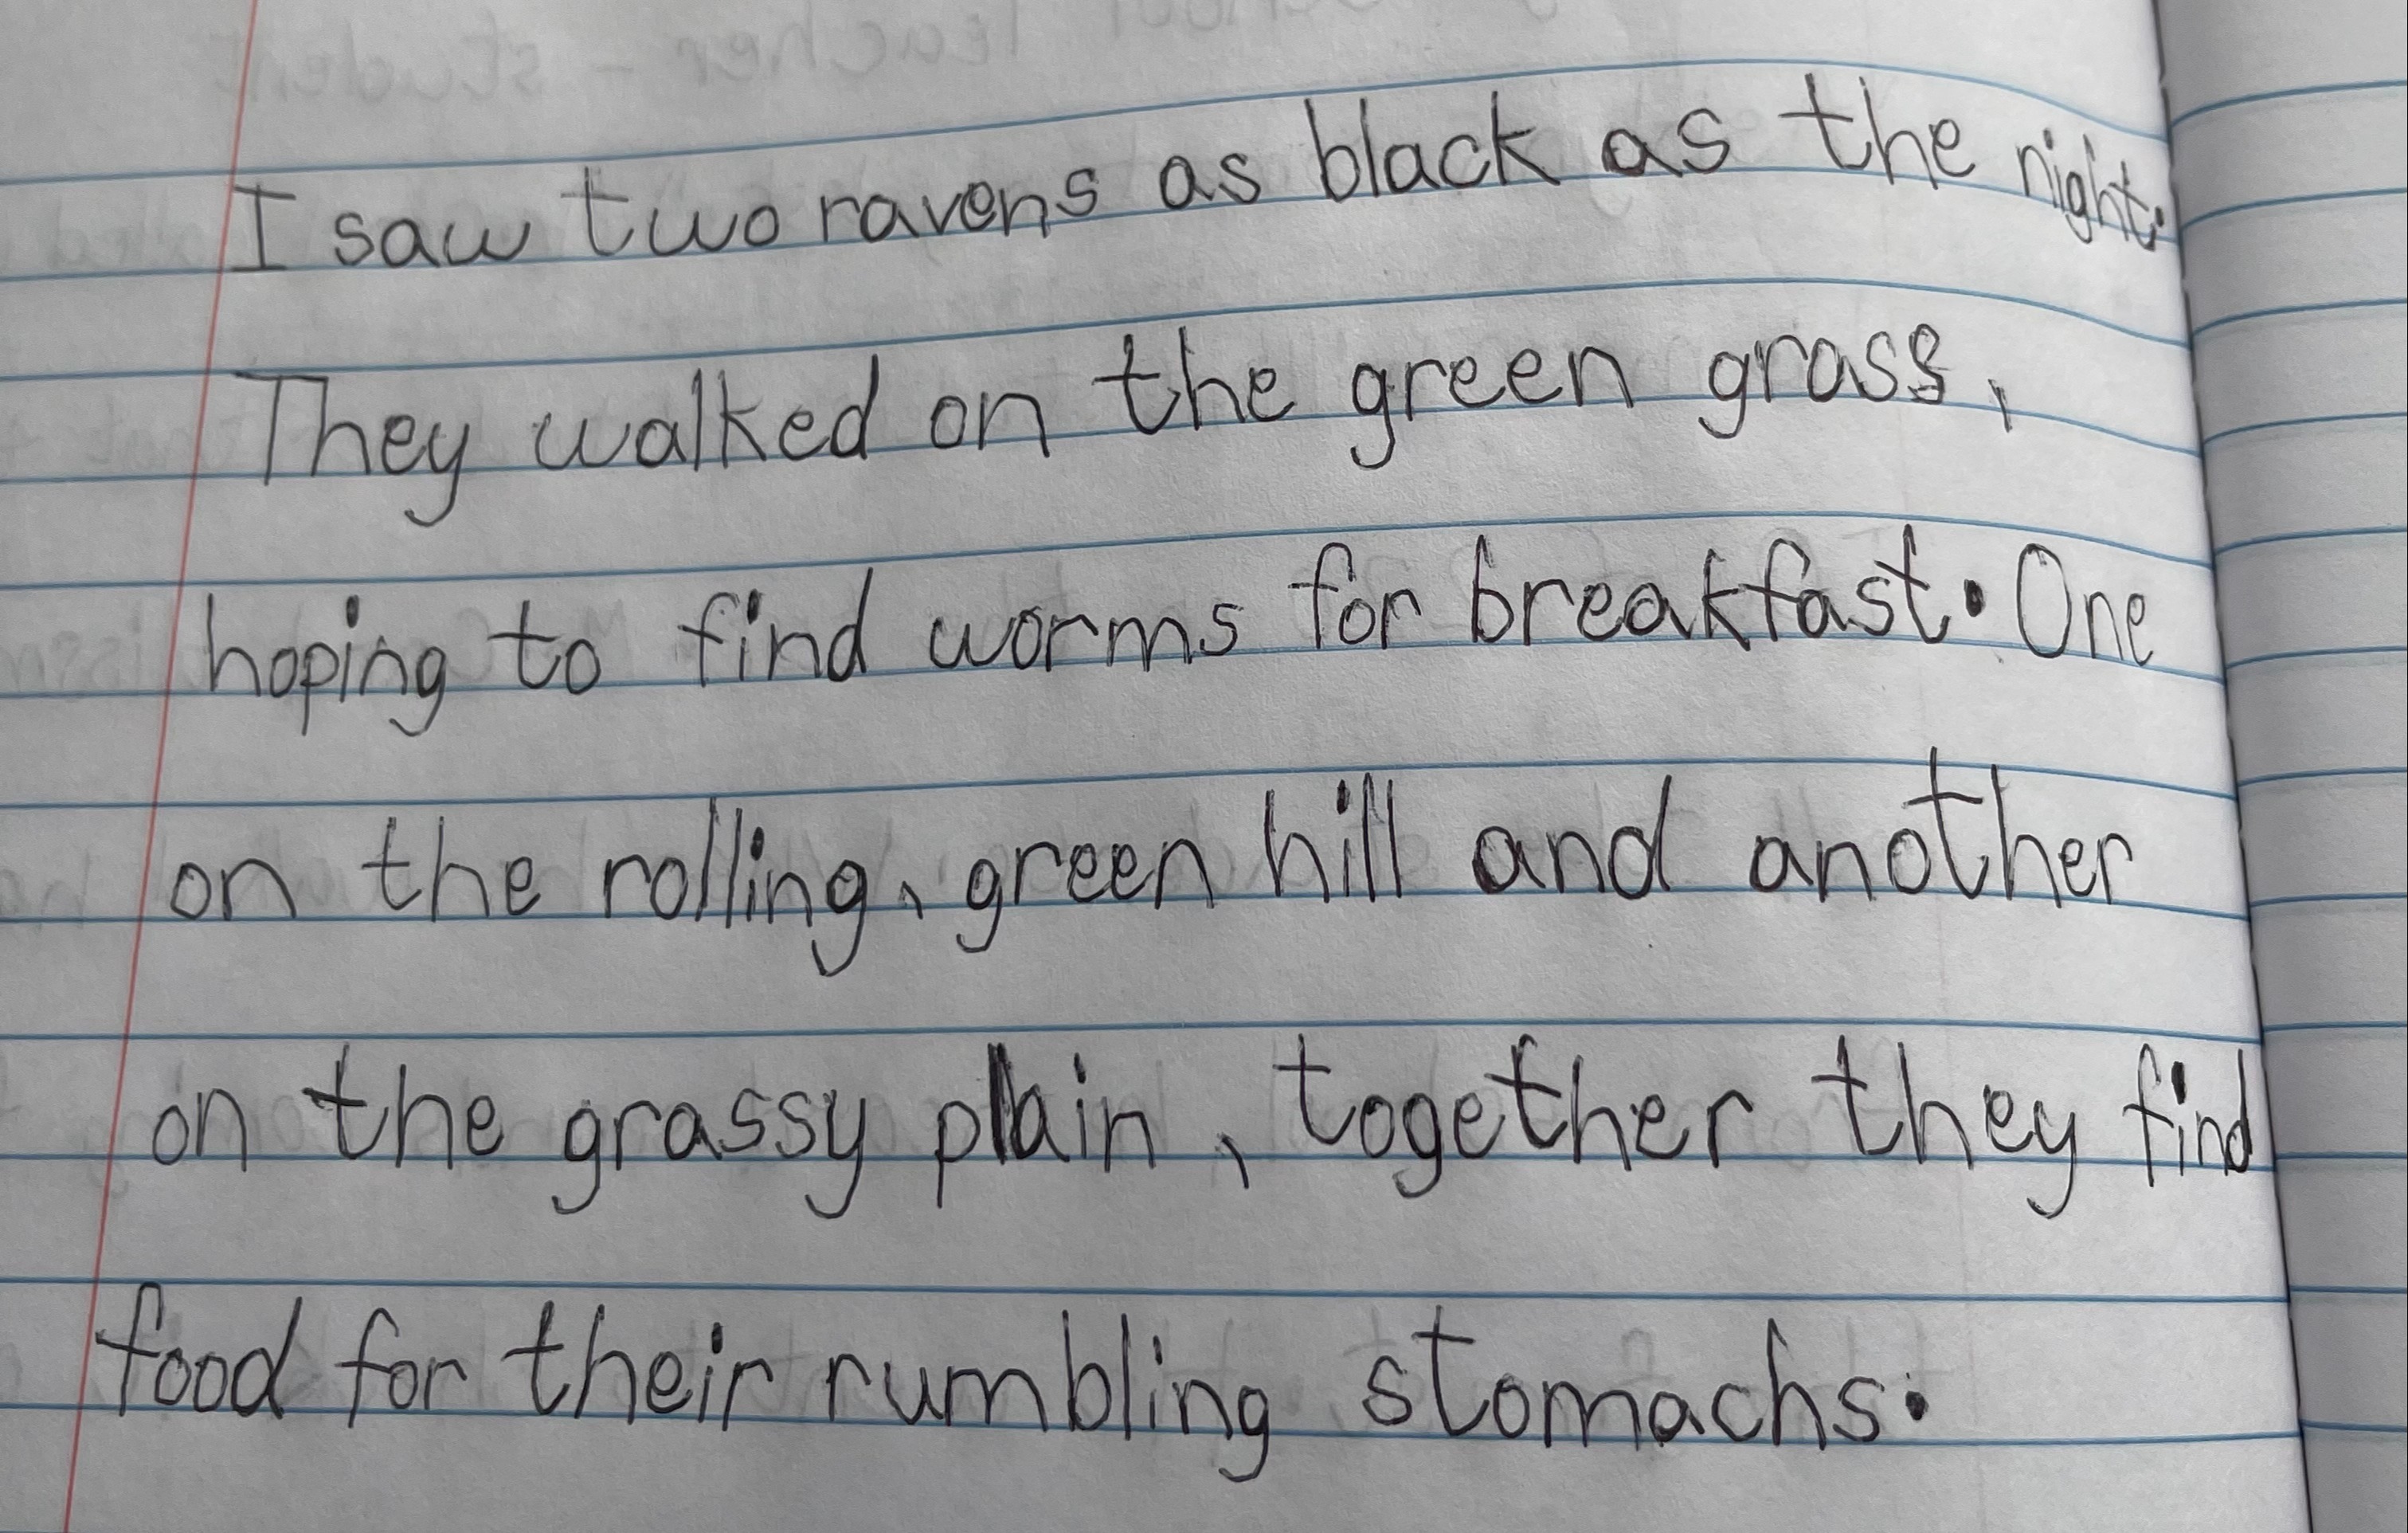 I saw two ravens as black as the night.
They walked on the green grass,
hoping to find worms for breakfast. One
on the rolling, green hill and another
on the grassy plain, together they find
food for their rumbling stomachs.